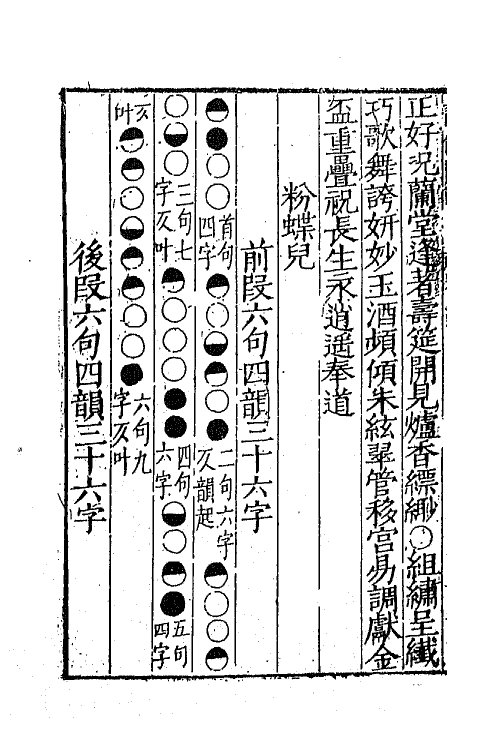 正好況蘭堂逢者壽筵開見爐香縹緲○組繡呈纖
巧歌舞誇妍妙玉酒頻傾朱絃翠管移宮易調獻金
盃重疊祝長生永逍遙奉道
粉蝶兒
前段六句四韻三十六字
◓●○○首句四字◓○◒◓○●二句六字仄韻起◓○○◒
○◒○三句七字仄叶◓○○○●●四句六字◒○◓●五句四字
仄叶◓◓○◒◓◓○○●六句九字仄叶
後段六句四韻三十六字